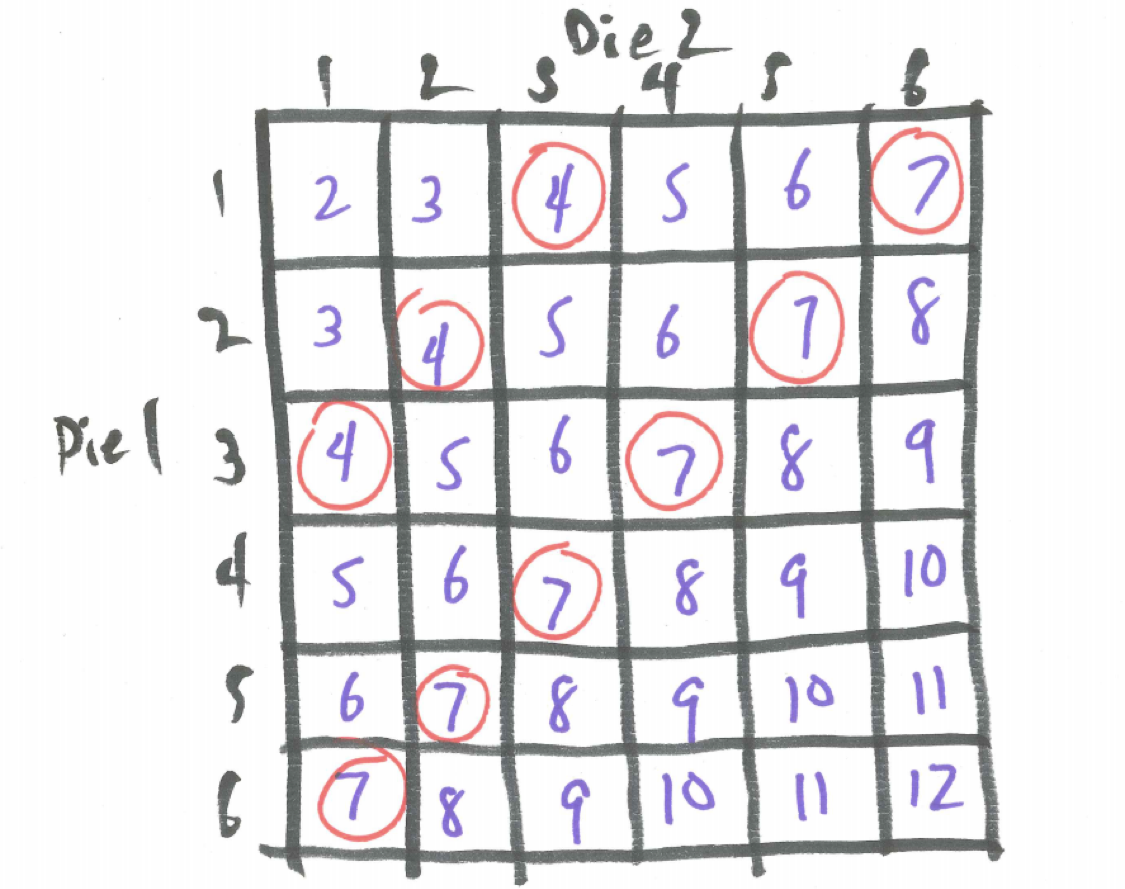 Die 2
1 2 3 4 5 6
1 2 3 4 5 6 7
2 3 4 5 6 7 8
Die 1
3 4 5 6 7 8 9
4 5 6 7 8 9 10
5 6 7 8 9 10 11
6 7 8 9 10 11 12